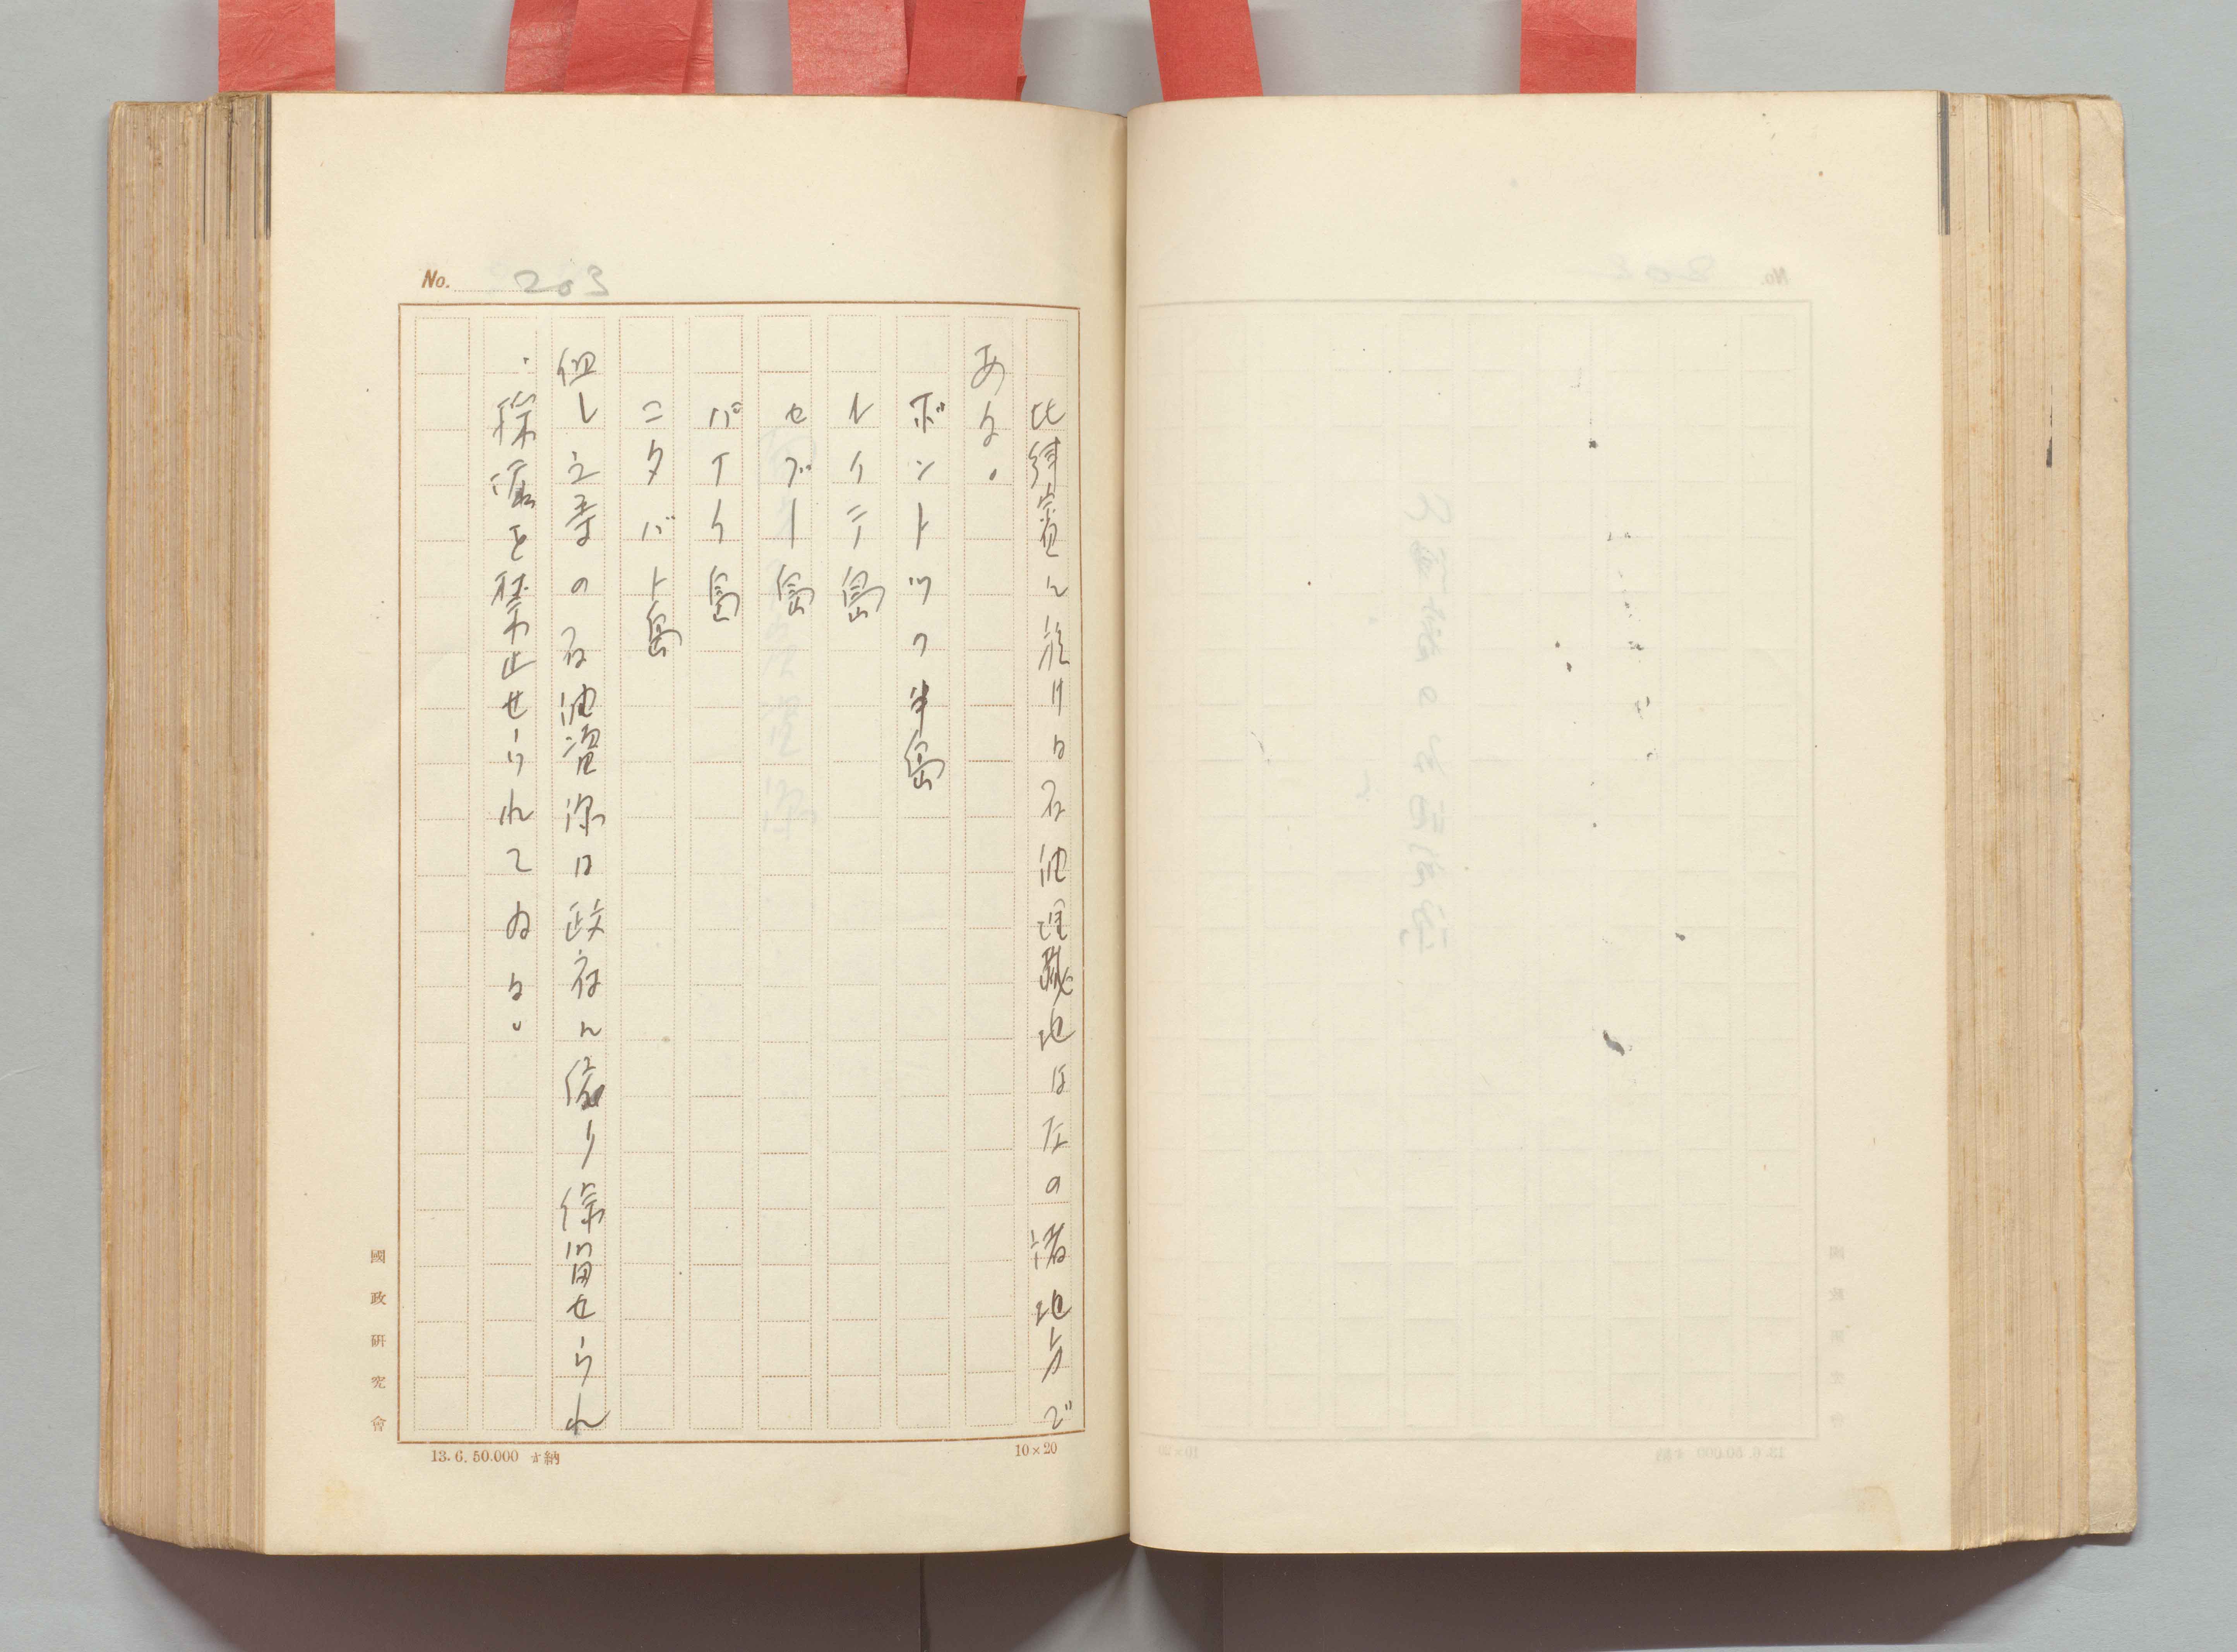 No. 203
比律賓に於ける石油埋藏地は左の諸地方で
ある。
ボントツク半島
レイテ島
セブー島
パナイ島
ニタバト島
但し之等の石油資源は政府に依り保留せられ
採掘を禁止せられてゐる。
國政研究會
13.6.50.000 納
10×20